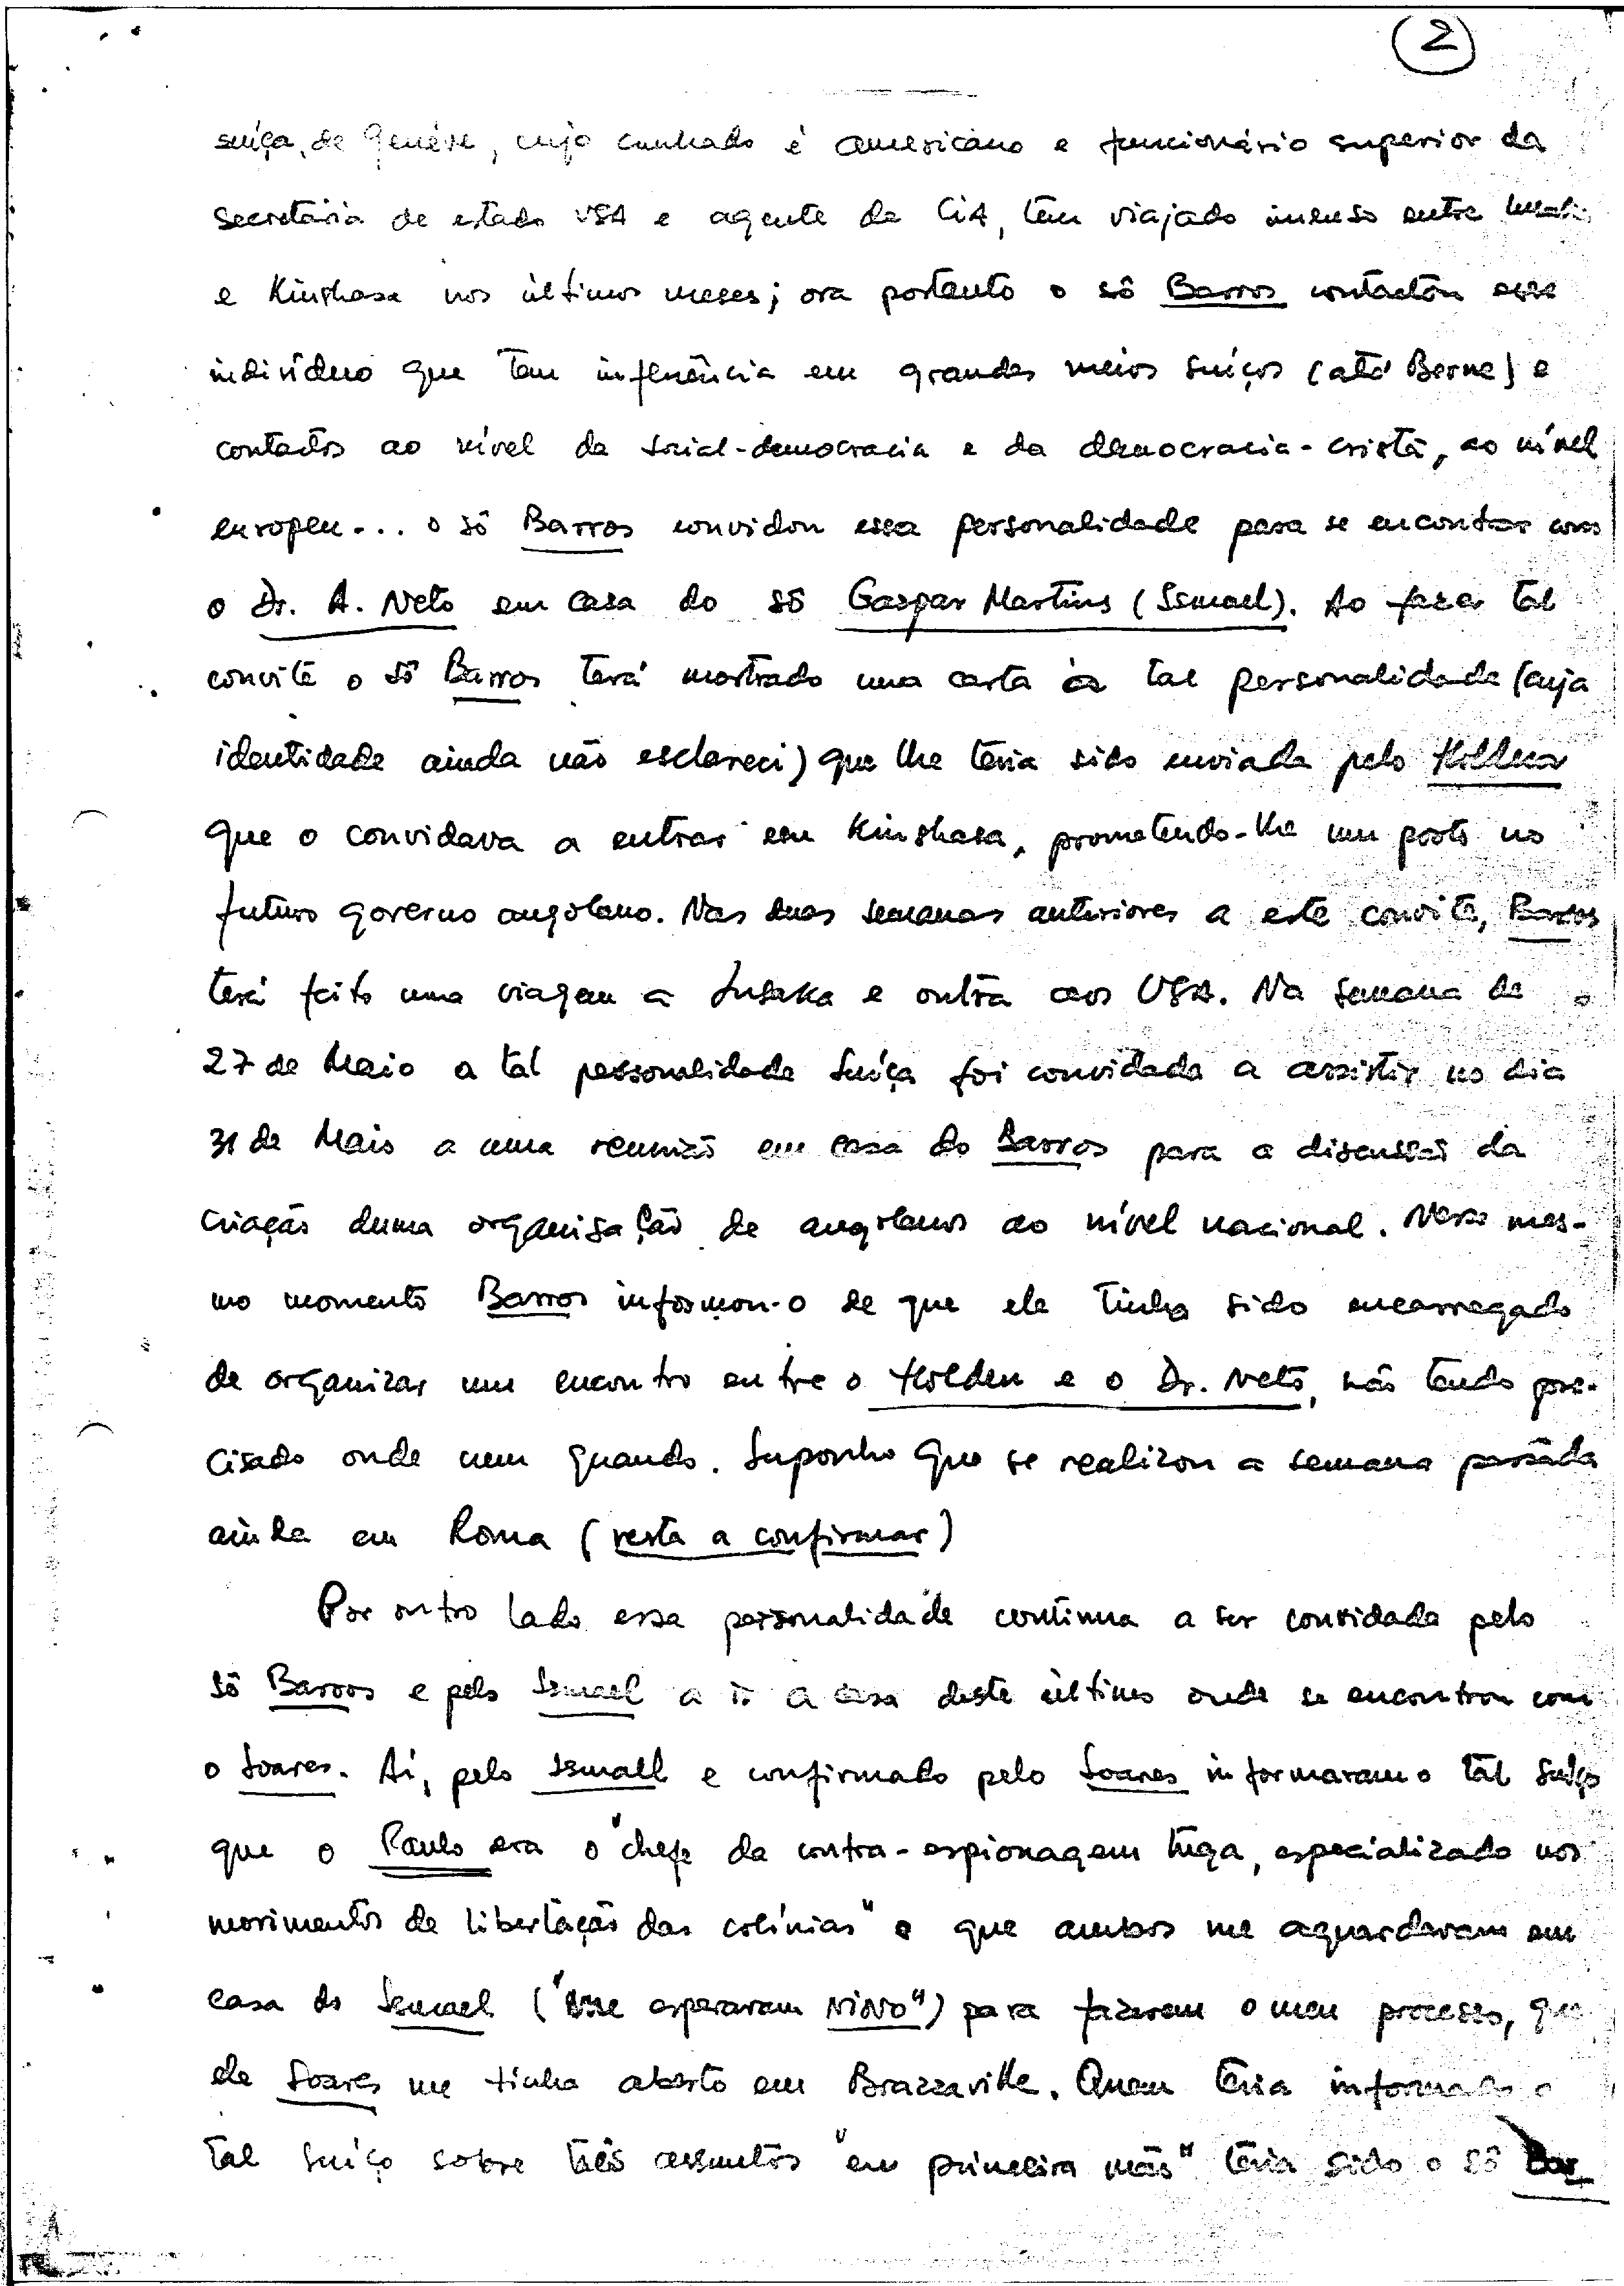 2
suíça, de Genève, cujo cunhado é americano e funcionário superior da
secretária de estado USA e agente da CIA, tem viajado imenso entre
e Kinshasa nos últimos meses; ora portanto o sô Barros contactou esse
indivíduo que tem influência em grandes meios suíços (até Berne) e
contactos ao nível da social-democracia e da democracia-cristã, ao nível
europeu... o sô Barros convidou essa personalidade para se encontrar com
o Dr. A. Neto em casa do sô Gaspar Martins (Ismael). Ao fazer tal
convite o sô Barros terá mostrado uma carta à tal personalidade (cuja
identidade ainda não esclareci) que lhe teria sido enviada pelo Holden
que o convidava a entrar em Kinshasa, prometendo-lhe um posto no
futuro governo angolano. Nas duas semanas anteriores a este convite, Barros
terá feito uma viagem a Lusaka e outra aos USA. Na semana de
27 de Maio a tal personalidade suíça foi convidada a assistir no dia
31 de Maio a uma reunião em casa do Barros para a discussão da
criação duma organisação de angolanos ao nível nacional. Nesse mes-
mo momento Barros informou-o de que ele tinha sido encarregado
de organizar um encontro entre o Holden e o Dr. Neto, não tendo pre-
cisado onde nem quando. Suponho que se realizou a semana passada
ainda em Roma (resta a confirmar)
Por outro lado essa personalidade continua a ser convidada pelo
sô Barros e pelo Ismael a ir a casa deste último onde se encontrou com
o Soares. Aí, pelo Ismaël e confirmado pelo Soares informaram o tal suíço
que o Paulo era o "chefe da contra-espionagem tuga, especializado nos
movimentos de libertação das colónias" e que ambos me aguardavam em
casa do Ismael ("me esperavam vivo") para fazerem o meu processo, que
ele Soares me tinha aberto em Brazzaville. Quem teria informado o
tal suíço sobre tais assuntos "em primeira mão" teria sido o sô Bar